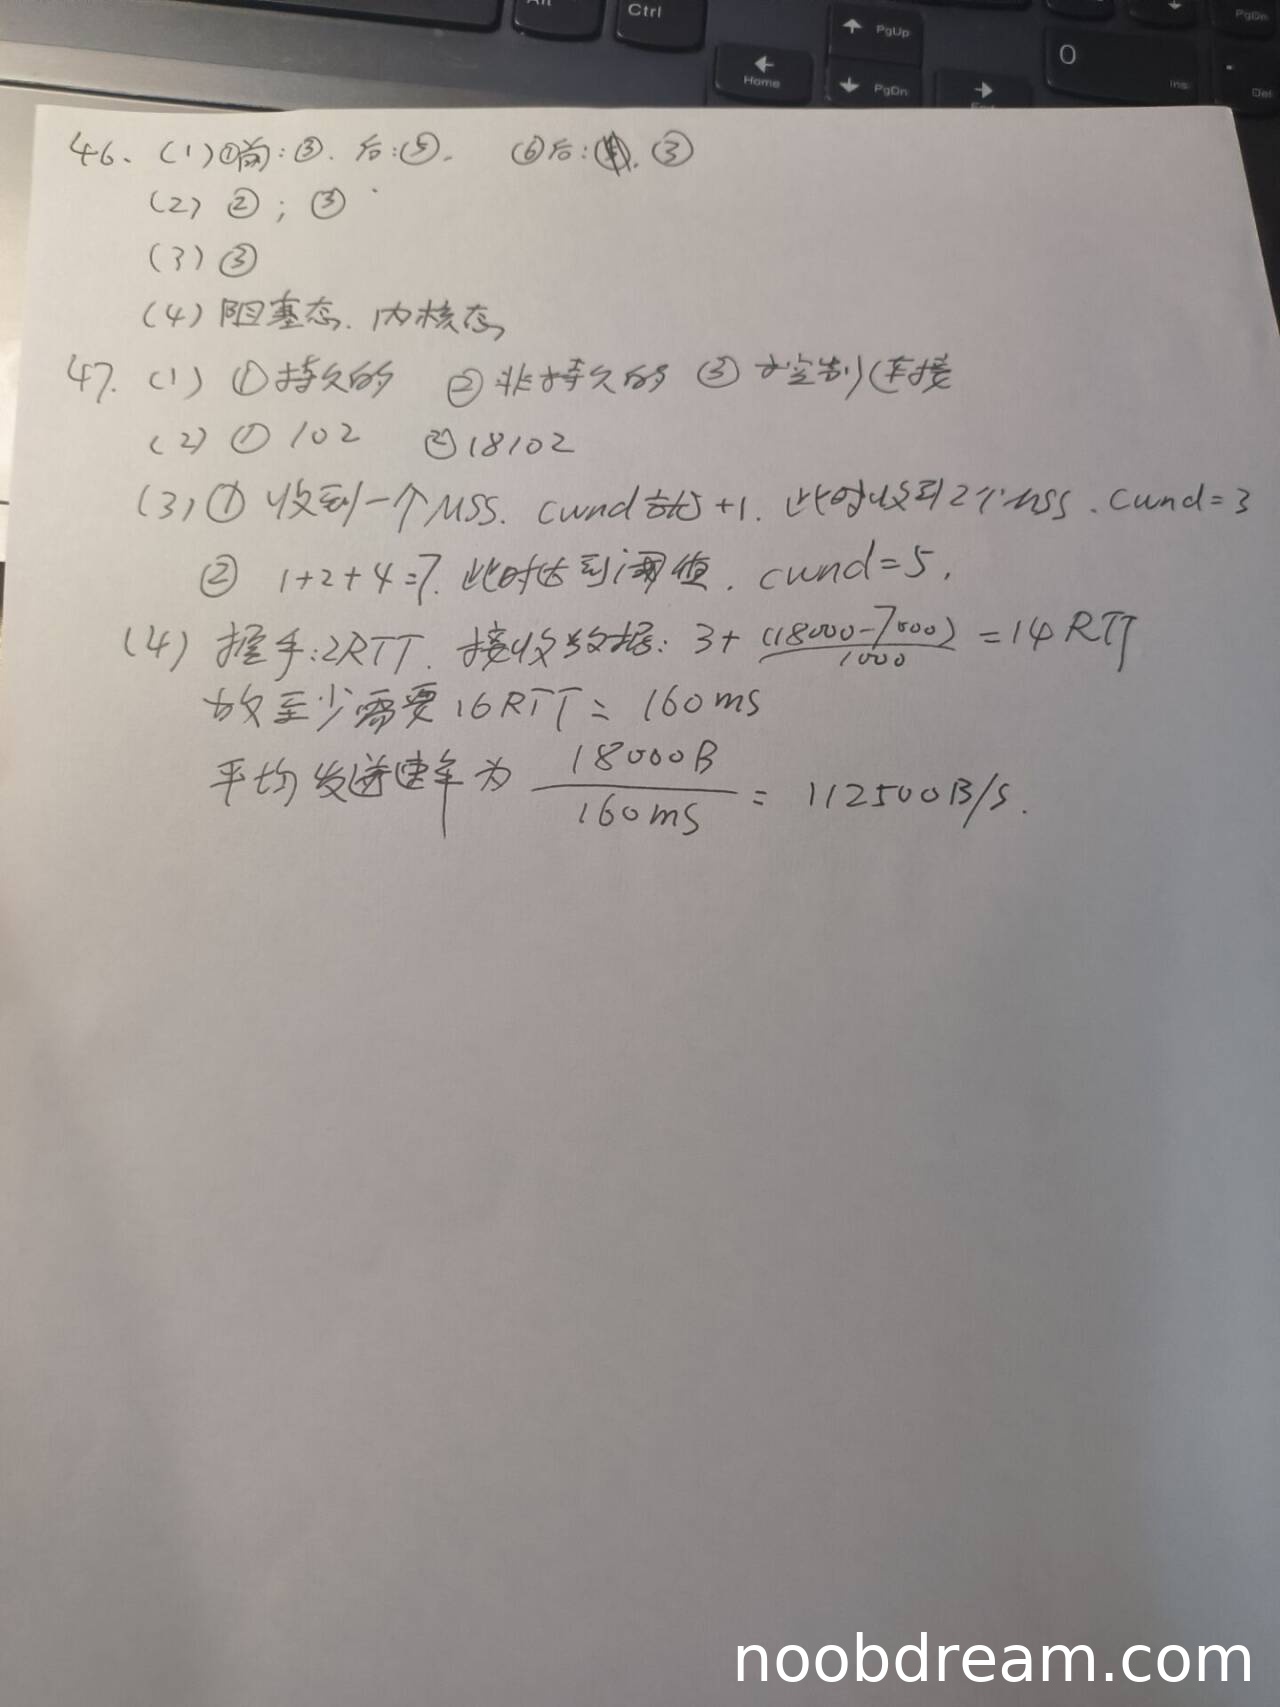 Alt
Ctrl
PgUp
Home
PgDn
0
Ins
Del
PgDn
46、(1)①前:③. 后:⑤. ⑥后:③
(2) ②; ③
(3) ③
(4) 阻塞态. 内核态
47. (1) ①持久的 ②非持久的 ③控制连接
(2) ① 102 ② 18102
(3) ① 收到一个MSS. cwnd就+1. 此时收到2个MSS. cwnd=3
② 1+2+4=7. 此时达到阈值. cwnd=5.
(4) 握手:2RTT. 接收数据: 3+ (18000-7000)/1000 =14RTT
故至少需要16RTT= 160ms
平均发送速率为 18000B/160ms = 112500B/S.
noobdream.com